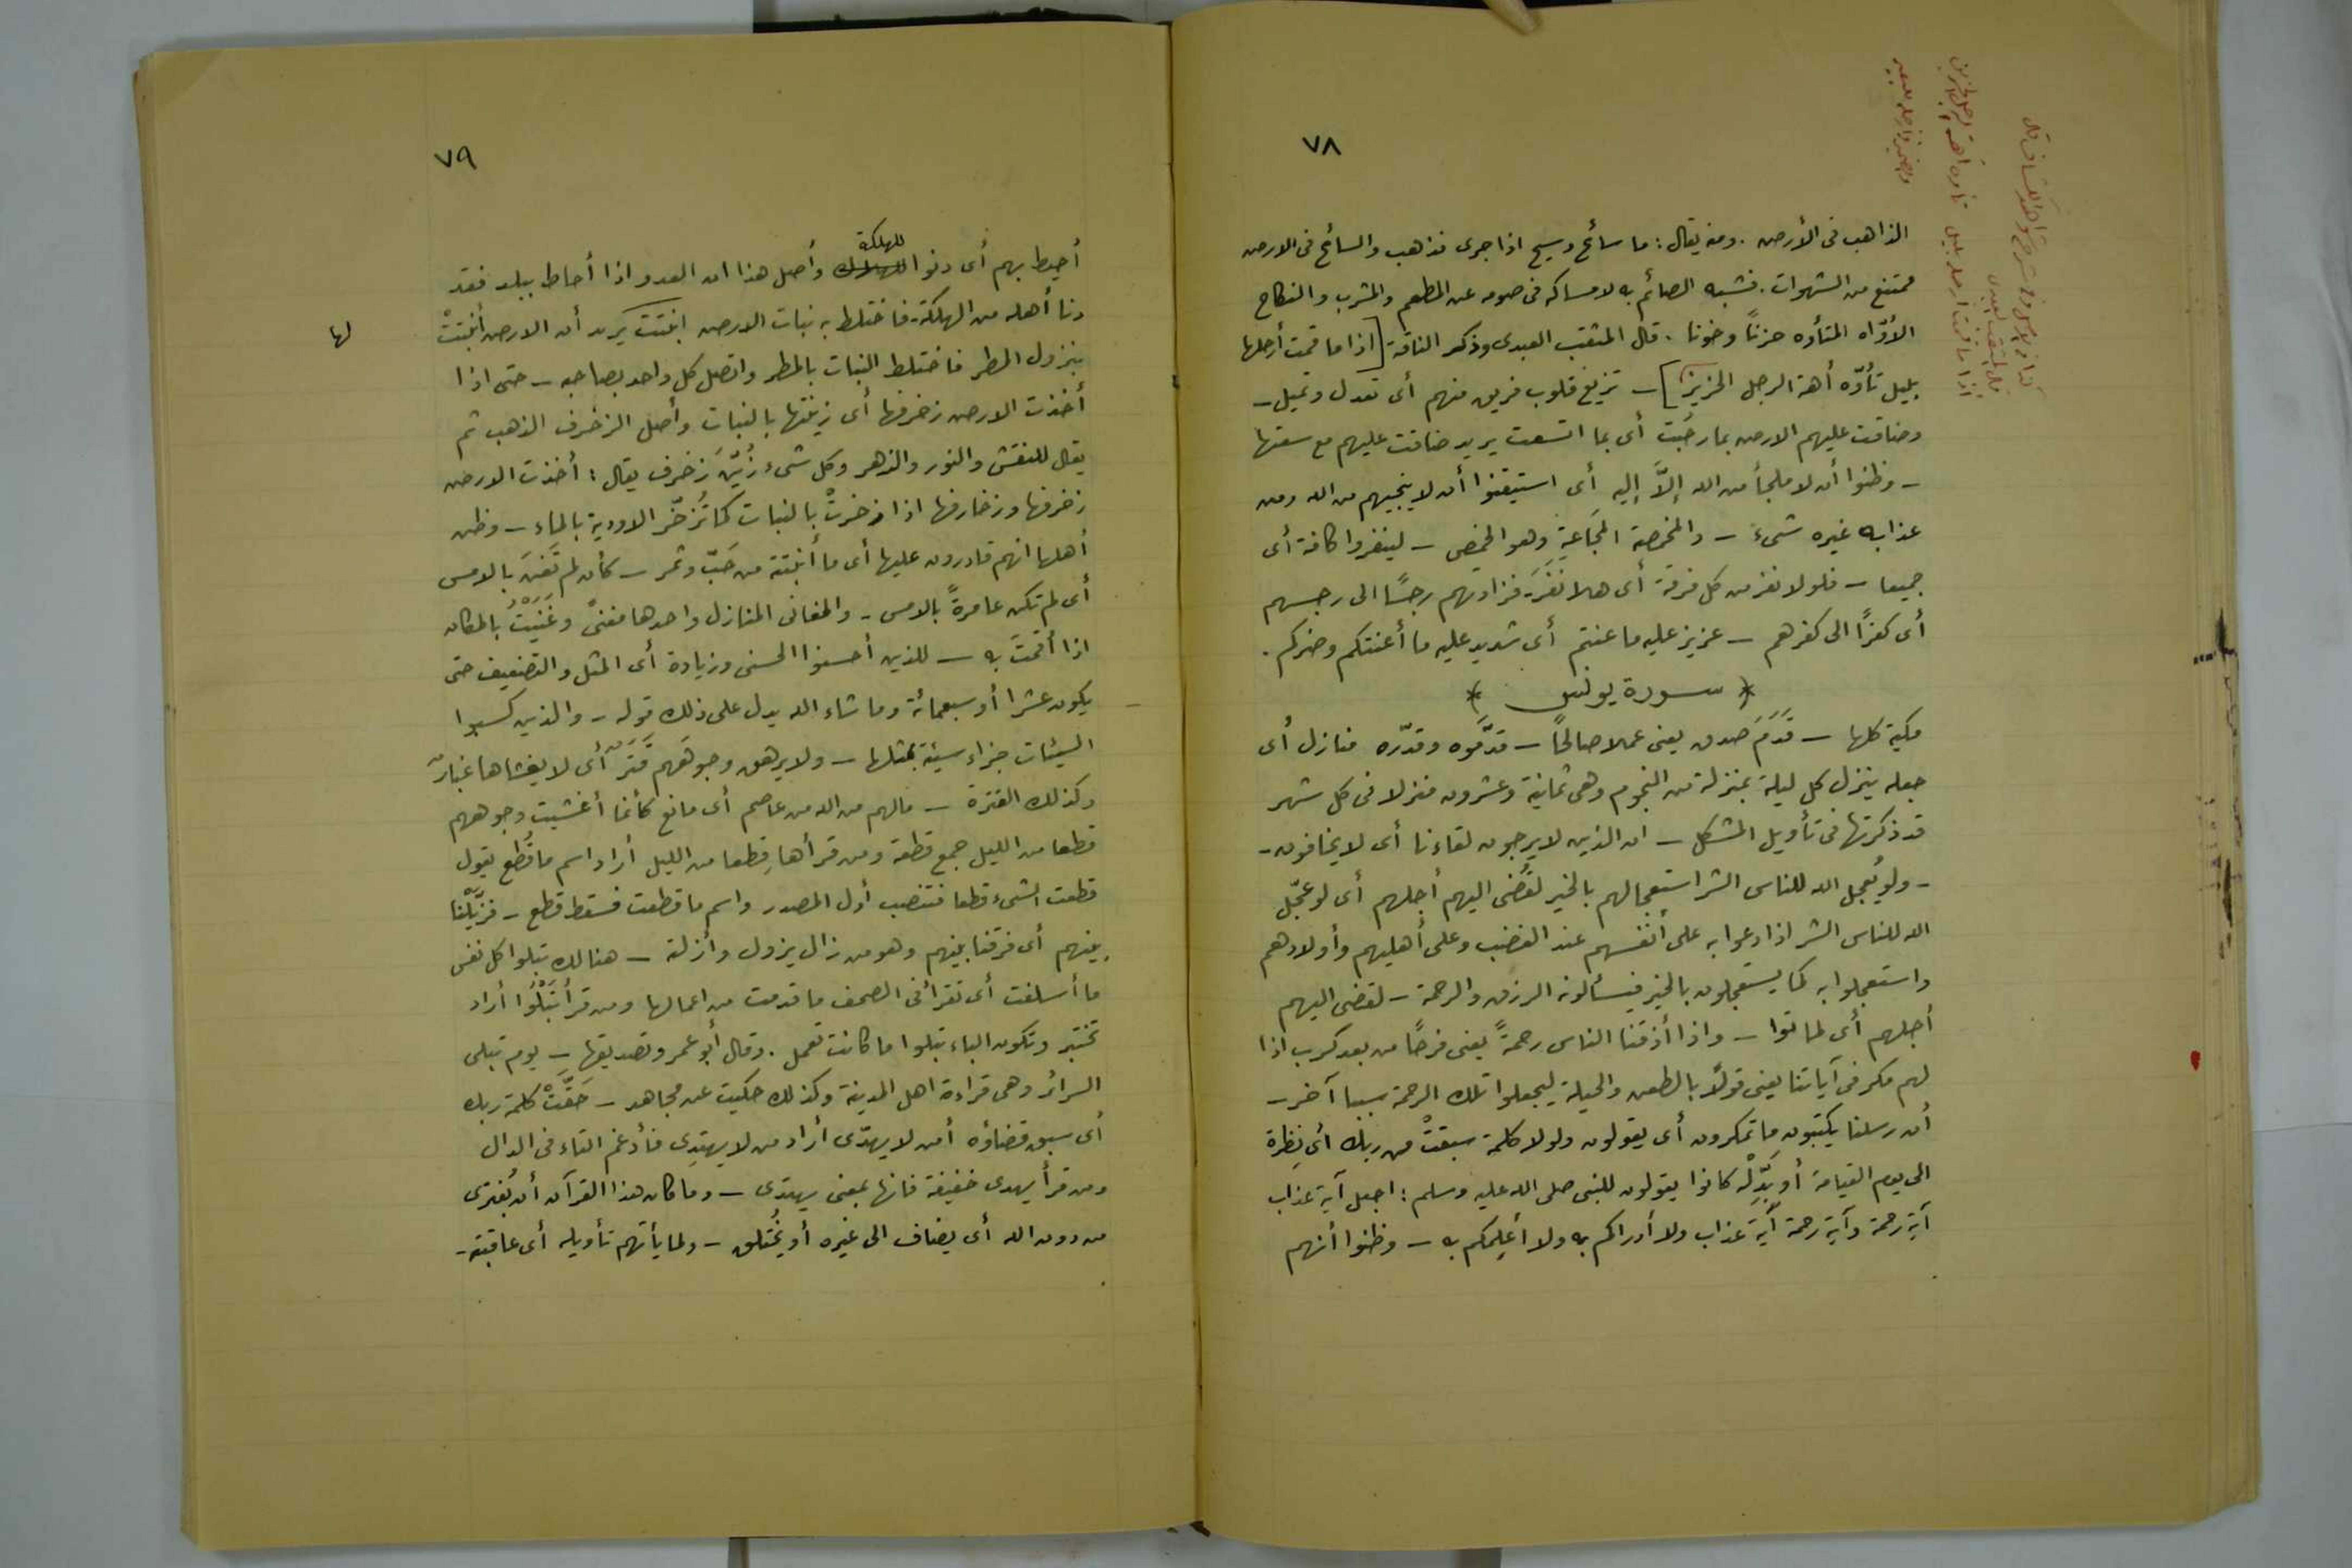 ٧٨
الذاهب فى الأرض . ومنه يقال : ما سائح وسيح اذا جرى فذهب والسائح فى الارض
ممتنع من الشهوات . فشبه الصائم به لامساكه فى صومه عن المطعم والمشرب والنكاح
الأوّاه المتأوه حزناً وخوفا . قال المثقب العبدى وذكر الناقة [ اذا ما قمت أرحلها
بليل تأوّه أهة الرجل الحزين ] – تزيغ قلوب فريق منهم أى تعدل وتميل –
وضاقت عليهم الارض بما رحُبَت أى بما اتسعت يريد ضاقت عليهم مع سعتها
– وظنوا أن لا ملجأ من الله إلاّ إليه أى استيقنوا أن لا ينجيهم من الله ومن
عذابه غيره شىء – والمخمصة المجَاعة وهو الخمص – لينفروا كافة أى
جميعا – فلولا نفر من كل فرقة أى هلا نَفَرَ – فزادتهم رجسًا الى رجسهم
أى كفرًا الى كفرهم – عزيز عليه ما عنتم أى شديد عليه ما أعنتكم وضركم .
* سورة يونس *
مكية كلها – قَدَمَ صدق يعنى عملا صالحًا – قدّموه وقدّره منازل أى
جعله ينزل كل ليلة بمنزلة من النجوم وهى ثمانية وعشرون منزلا فى كل شهر
قد ذكرتها فى تأويل المشكل – ان الذين لا يرجون لقاءنا أى لا يخافون –
– ولو يُعجل الله للناس الشر استعجالهم بالخير لقُضى اليهم أجلهم أى لو عجّل
الله للناس الشر اذا دعوا به على أنفسهم عند الغضب وعلى أهليهم وأولادهم
واستعجلوا به كما يستعجلون بالخير فيسألونه الرزق والرحمة – لقضى اليهم
أجلهم أى لماتوا – واذا أذقنا الناس رحمةً يعنى فرحًا من بعد كرب اذا
لهم مكر فى آياتنا يعنى قولًا بالطعن والحيلة ليجعلوا تلك الرحمة سببا آخر –
أن رسلنا يكتبون ما تمكرون أى يقولون ولولا كلمة سبقتْ من ربك أى نِظرة
الى يوم القيامة أو بَدِّلْه كانوا يقولون للنبى صلى الله عليه وسلم : اجعل آية عذاب
آية رحمة وآية رحمة آية عذاب ولا أدراكم به ولا أعلِمكم به – وظنوا أنهم
٧٩
أحيط بهم أى دنوا للهلكة وأصل هذا ان العدو اذا أحاط ببلد فقد
دنا أهله من الهلكة – فاختلط به نبات الارض انبتت يريد أن الارض أنبتتْ
بنزول المطر فاختلط النبات بالمطر واتصل كل واحد بصاحبه – حتى اذا
أخذت الارض زخرفها أى زينتها بالنبات وأصل الزخرف الذهب ثم
يقال للنقش والنور والزهر وكل شىء زُيّنَ زخرف يقال : أخذت الارض
زخرفها وزخارفها اذا زخرتْ بالنبات كما تُزخّر الاودية بالماء – وظن
أهلها انهم قادرون عليها أى ما أنبتته من حَبّ وثمر – كأن لم تَغنَ بالامس
أى لم تكن عامرةً بالامس – والمغانى المنازل واحدها مغنىً وغَنَيْتُ بالمكان
اذا أقمتَ به – للذين أحسنوا الحسنى وزيادة أى المثل والتضعيف حتى
يكون عشرا أو سبعمائة وما شاء الله يدل على ذلك قوله – والذين كسبوا
السيئات جزاء سيئة بمثلها – ولا يرهق وجوهَهم قَتَرٌ أى لا يغشاها غبارٌ
وكذلك القترة – مالهم من الله من عاصم أى مانع كأنما أغشيت وجوههم
قطعا من الليل جمع قطعة ومن قرأها قِطعا من الليل أراد اسم ما قُطع يقول
قطعت الشىء قطعا فتنصب أول المصدر واسم ما قطعت فسقط قطع – فزيّلْنا
بينهم أى فرقنا بينهم وهو من زال يزول وأزلة – هنالك تبلوا كل نفس
ما أسلفت أى تقرأ فى الصحف ما قدمت من اعمالها ومن قرأ تَبْلُوا أراد
تختبر وتكون الباء تبلوا ما كانت تعمل . وقال أبو عمر وتصديقها – يوم تبلى
السرائر وهى قراءة اهل المدينة وكذلك حكيت عن مجاهد – حَقَّتْ كلمة ربك
أى سبق قضاؤه أمن لا يهدّى أراد من لا يهتدِى فأدغم التاء فى الدال
ومن قرأ يهدى خفيفة فانها بمعنى يهتدى – وما كان هذا القرآن أن يُفترى
من دون الله أى يضاف الى غيره أو يُختلق – ولما يأتهم تأويله أى عاقبته –
لها